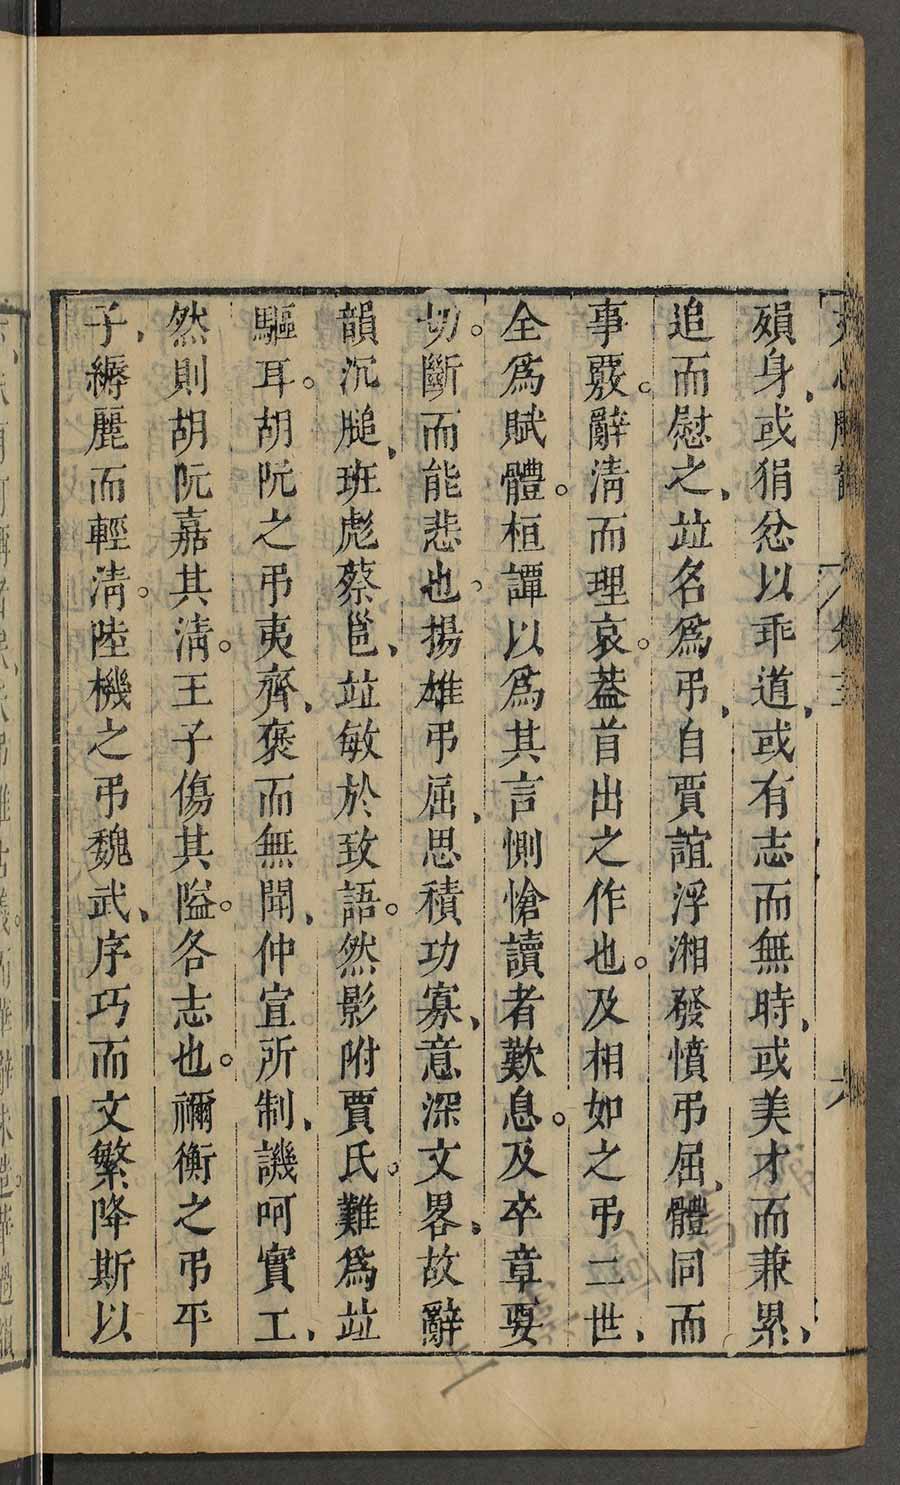 殞身、或狷忿以乖道、或有志而無時、或美才而兼累、
追而慰之、竝名爲弔、自賈誼浮湘發憤弔屈、體同而
事覈。辭淸而理哀。蓋首出之作也。及相如之弔二世、
全爲賦體。桓譚以爲其言惻愴讀者歎息。及卒章要
切。斷而能悲也。揚雄弔屈、思積功寡、意深文畧、故辭
韻沉膇、班彪蔡邕、竝敏於致語。然影附賈氏。難爲竝
驅耳。胡阮之弔夷齊、褒而無聞、仲宣所制、譏呵實工、
然則胡阮嘉其淸。王子傷其隘。各志也。禰衡之弔平
子、縟麗而輕淸。陸機之弔魏武、序巧而文繁降斯以